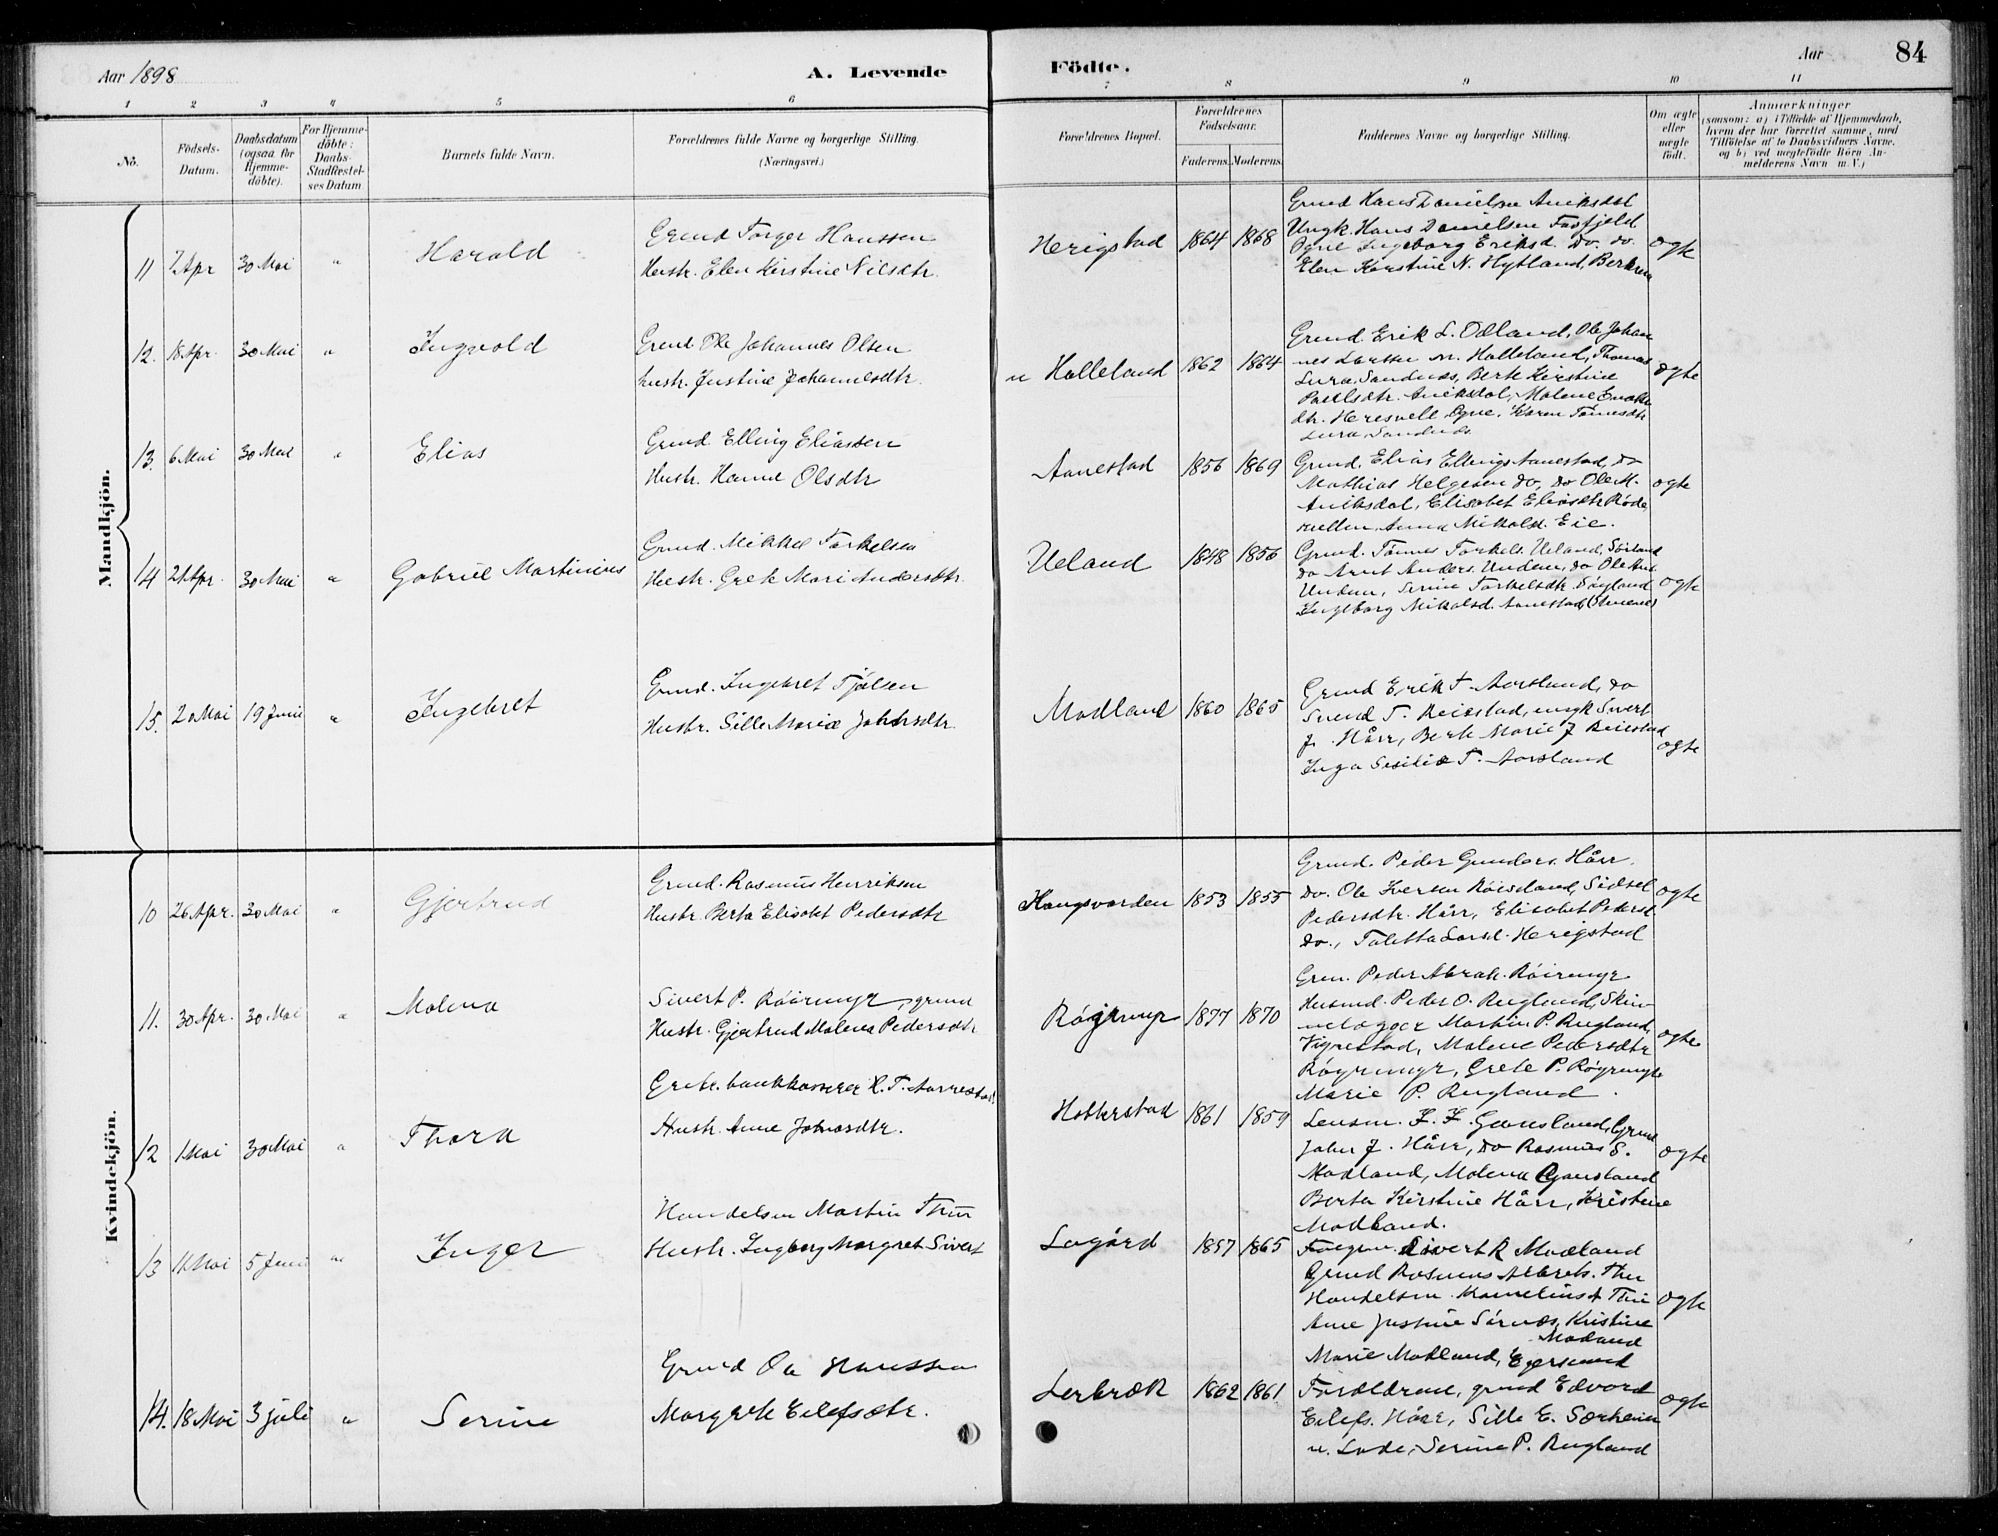 Aar 1898
A. Levende
Födte.
Aar
84
1 2 3 4 5 6 7 8 9 10 11
No.
Födsels-Datum.
Daabsdatum (ogsaa for Hjemme-döbte).
For Hjemme-döbte: Daabs-Stadfæstel-ses Datum
Barnets fulde Navn.
Forældrenes fulde Navne og borgerlige Stilling.
(Næringsvei.)
Forældrenes Bopæl.
Forældrenes Födselsaar.
Faderens. Moderens.
Faddernes Navne og borgerlige Stilling.
Om ægte eller uægte födt.
Anmærkninger
(saasom: a) i Tilfælde af Hjemmedaab, hvem der har forrettet samme, med Tilföielse af to Daabsvidners Navne, og b) ved uægtefödte Börn An-melderens Navn m. V.)
Mandkjön.
11 2 Apr 30 Mai " Harald
Grund Torger Hanssen
Hustr. Elen Kirstine Nilsdtr.
Herigstad 1864 1868
Grund Hans Danielsen Aniksdal
Ungk. Hans Danielsen Fosfjeld
Ogne Ingeborg Eriksd. do. do.
Elen Kirstine N. Hytland,
ægte
12. 18 Apr. 30 Mai " Ingvald
Grund. Ole Johannes Olsen
hustr. Justine Johannesdtr.
n Halleland 1862 1864
Grund. Erik L. Ødland, Ole Johan
nes Larssen n. Halleland, Thomas
Lura, Sandnes, Berte Kirstine
Paulsdtr. Aniksdal, Malene
dtr. Ogne, Karen Tønnesdtr
Lura Sandnes
ægte
13. 6 Mai 30 Mai " Elias
Grund. Elling Eliassen
Hustr. Hanne Olsdtr
Aanestad 1856 1869
Grund. Elias Ellings Aanestad, do
Mathias Helgesen do, do Ole M.
Aniksdal, Elisabet Eliasdtr
Anna Nikolsd. Eie.
ægte
14 21 Apr. 30 Mai " Gabriel Martinius
Grund. Mikkel Torkelsen
Hustr. Grete Mari Andersdtr.
Ueland 1848 1856
Grund. Tønnes Torkels. Ueland,
do Arnt Anders. Undem, do Ole And.
Undem, Serine Torkelsdtr.
Ingeborg Nikolsd. Aanestad
ægte
15. 20 Mai 19 Juni " Ingebret
Grund. Ingebret Tjølsen
Hustr. Sille Marie
Modland 1860 1865
Grund Erik T. Aarsland, do
Svend T. Reiestad, ungk Sivert
J. Hårr, Berte Marie J Reiestad
Inga Sesilie T. Aarsland
ægte
Kvindekjön.
10 26 Apr. 30 Mai " Gjertrud
Grund. Rasmus Henriksen
Hustr. Berta Elisabet Pedersdtr
Haugsvarden 1853 1855
Grund. Peder Gunders. Hårr.
do. Ole Iversen Røisland, Sidsel
Pedersdtr. Hårr, Elisabet Pedersd.
do., Taletta Larsd. Herigstad
ægte
11. 30 Apr. 30 Mai " Malena
Sivert P. Røirmyr, grund
Hustr. Gjertrud Malena Pedersdtr
Røyrmyr 1877 1870
Grun. Peder Abrah. Røirmyr
Husmd. Peder O. Rugland, Skin-
nelægger Martin P. Rugland,
Vigrestad, Malene Pedersdtr
Røyrmyr, Grete P. Røyrmyr
Marie P. Rugland.
ægte
12 1 Mai 30 Mai " Thora
bankkasserer H. T. Aarrestad
Hustr. Anne
Holterstad 1861 1859
Lensm. F. F. Gausland, Grund
John J. Hårr, do Rasmus S.
Modland, Malena Gausland
Berta Kirstine Hårr, Kristine
Modland.
ægte
13 11 Mai 5 Juni " Inger
Handelsm Martin Thu
Hustr. Ingborg Margret Sivert
Lagård 1857 1865
Sivert R Modland
Grund Rasmus Albrets. Thu
Handelsm. Kornelius A Thu
Ane Justine Kristine
Modland
Marie Modland, Egersund
ægte
14. 18 Mai 3 juli " Serine
Grund Ole Hanssen
Margrete Eilefsdtr.
Lerbræk 1862 1861
Forældrene, grund Edvard
Eilefs. Hårr, Sille E. Særheim
n. Lode, Serine P. Rugland
ægte